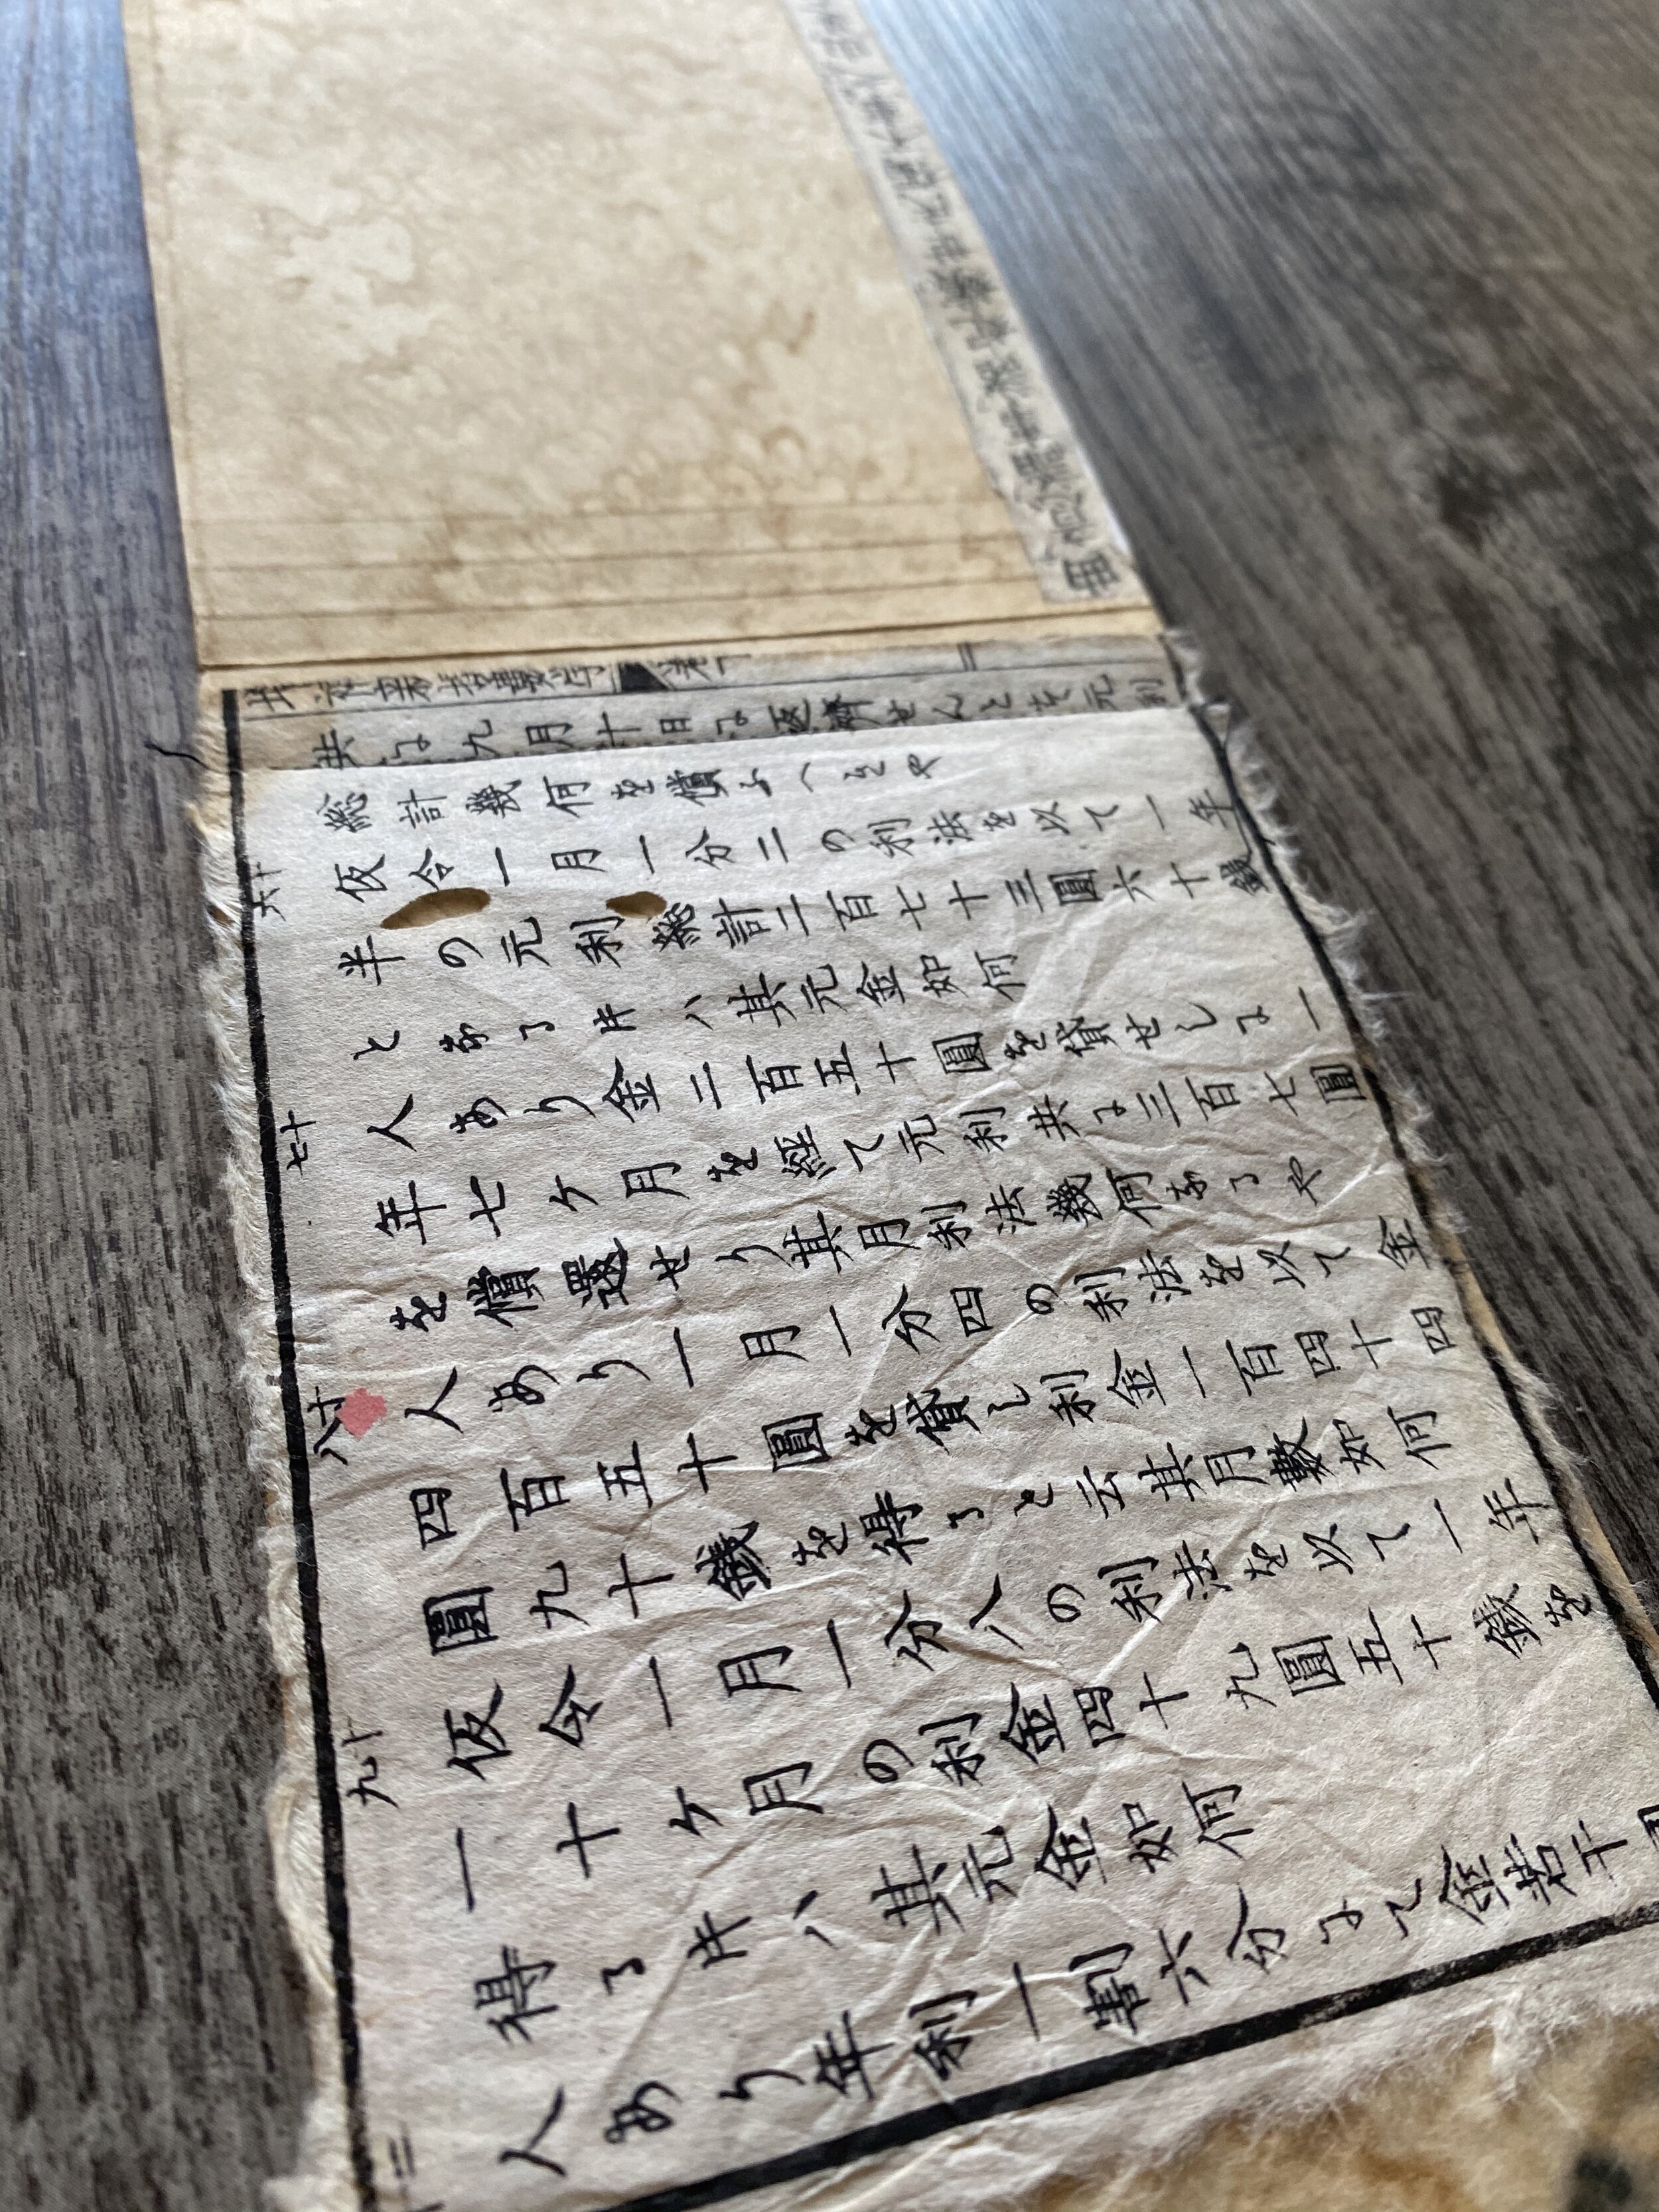 共に九月十日に返濟せんとす元利
総計幾何を償ふへきや
十六
仮令一月一分二の利法を以て一年
半の元利総計二百七十三圓六十錢
となる片ハ其元金如何
十七
人あり金二百五十圓を貸せしに一
年七ケ月を経て元利共に三百七圓
を償還せり其月利法幾何なるや
十八
人あり一月一分四の利法を以て金
四百五十圓を貸し利金一百四十四
圓九十錢を得ると云其月數如何
十九
仮令一月一分八の利法を以て一年
一十ケ月の利金四十九圓五十錢を
得る片ハ其元金如何
二
人あり年利一割六分にて金若干